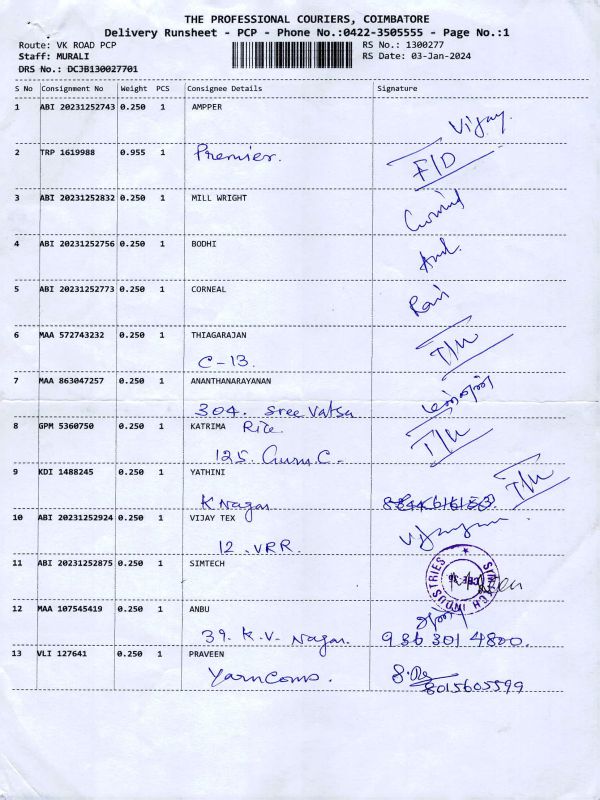 THE PROFESSIONAL COURIERS, COIMBATORE
Delivery Runsheet - PCP - Phone No.:0422-3505555 - Page No.:1
Route: VK ROAD PCP RS No.: 1300277
Staff: MURALI RS Date: 03-Jan-2024
DRS No.: DCJB130027701
S No Consignment No Weight PCS Consignee Details Signature
1 ABI 20231252743 0.250 1 AMPPER Vijay.
2 TRP 1619988 0.955 1 Premier. F/D
3 ABI 20231252832 0.250 1 MILL WRIGHT
4 ABI 20231252756 0.250 1 BODHI
5 ABI 20231252773 0.250 1 CORNEAL Ravi
6 MAA 572743232 0.250 1 THIAGARAJAN
C-13.
7 MAA 863047257 0.250 1 ANANTHANARAYANAN
304. Sree Vatsa
8 GPM 5360750 0.250 1 KATRIMA Rite.
125.
9 KDI 1488245 0.250 1 YATHINI
K Nagar.
10 ABI 20231252924 0.250 1 VIJAY TEX
12. VRR.
11 ABI 20231252875 0.250 1 SIMTECH
SIMTECH INDUSTRIES
12 MAA 107545419 0.250 1 ANBU
39. K.V. Nagar. 936 301 4800.
13 VLI 127641 0.250 1 PRAVEEN
Yarncoms.
8015605599